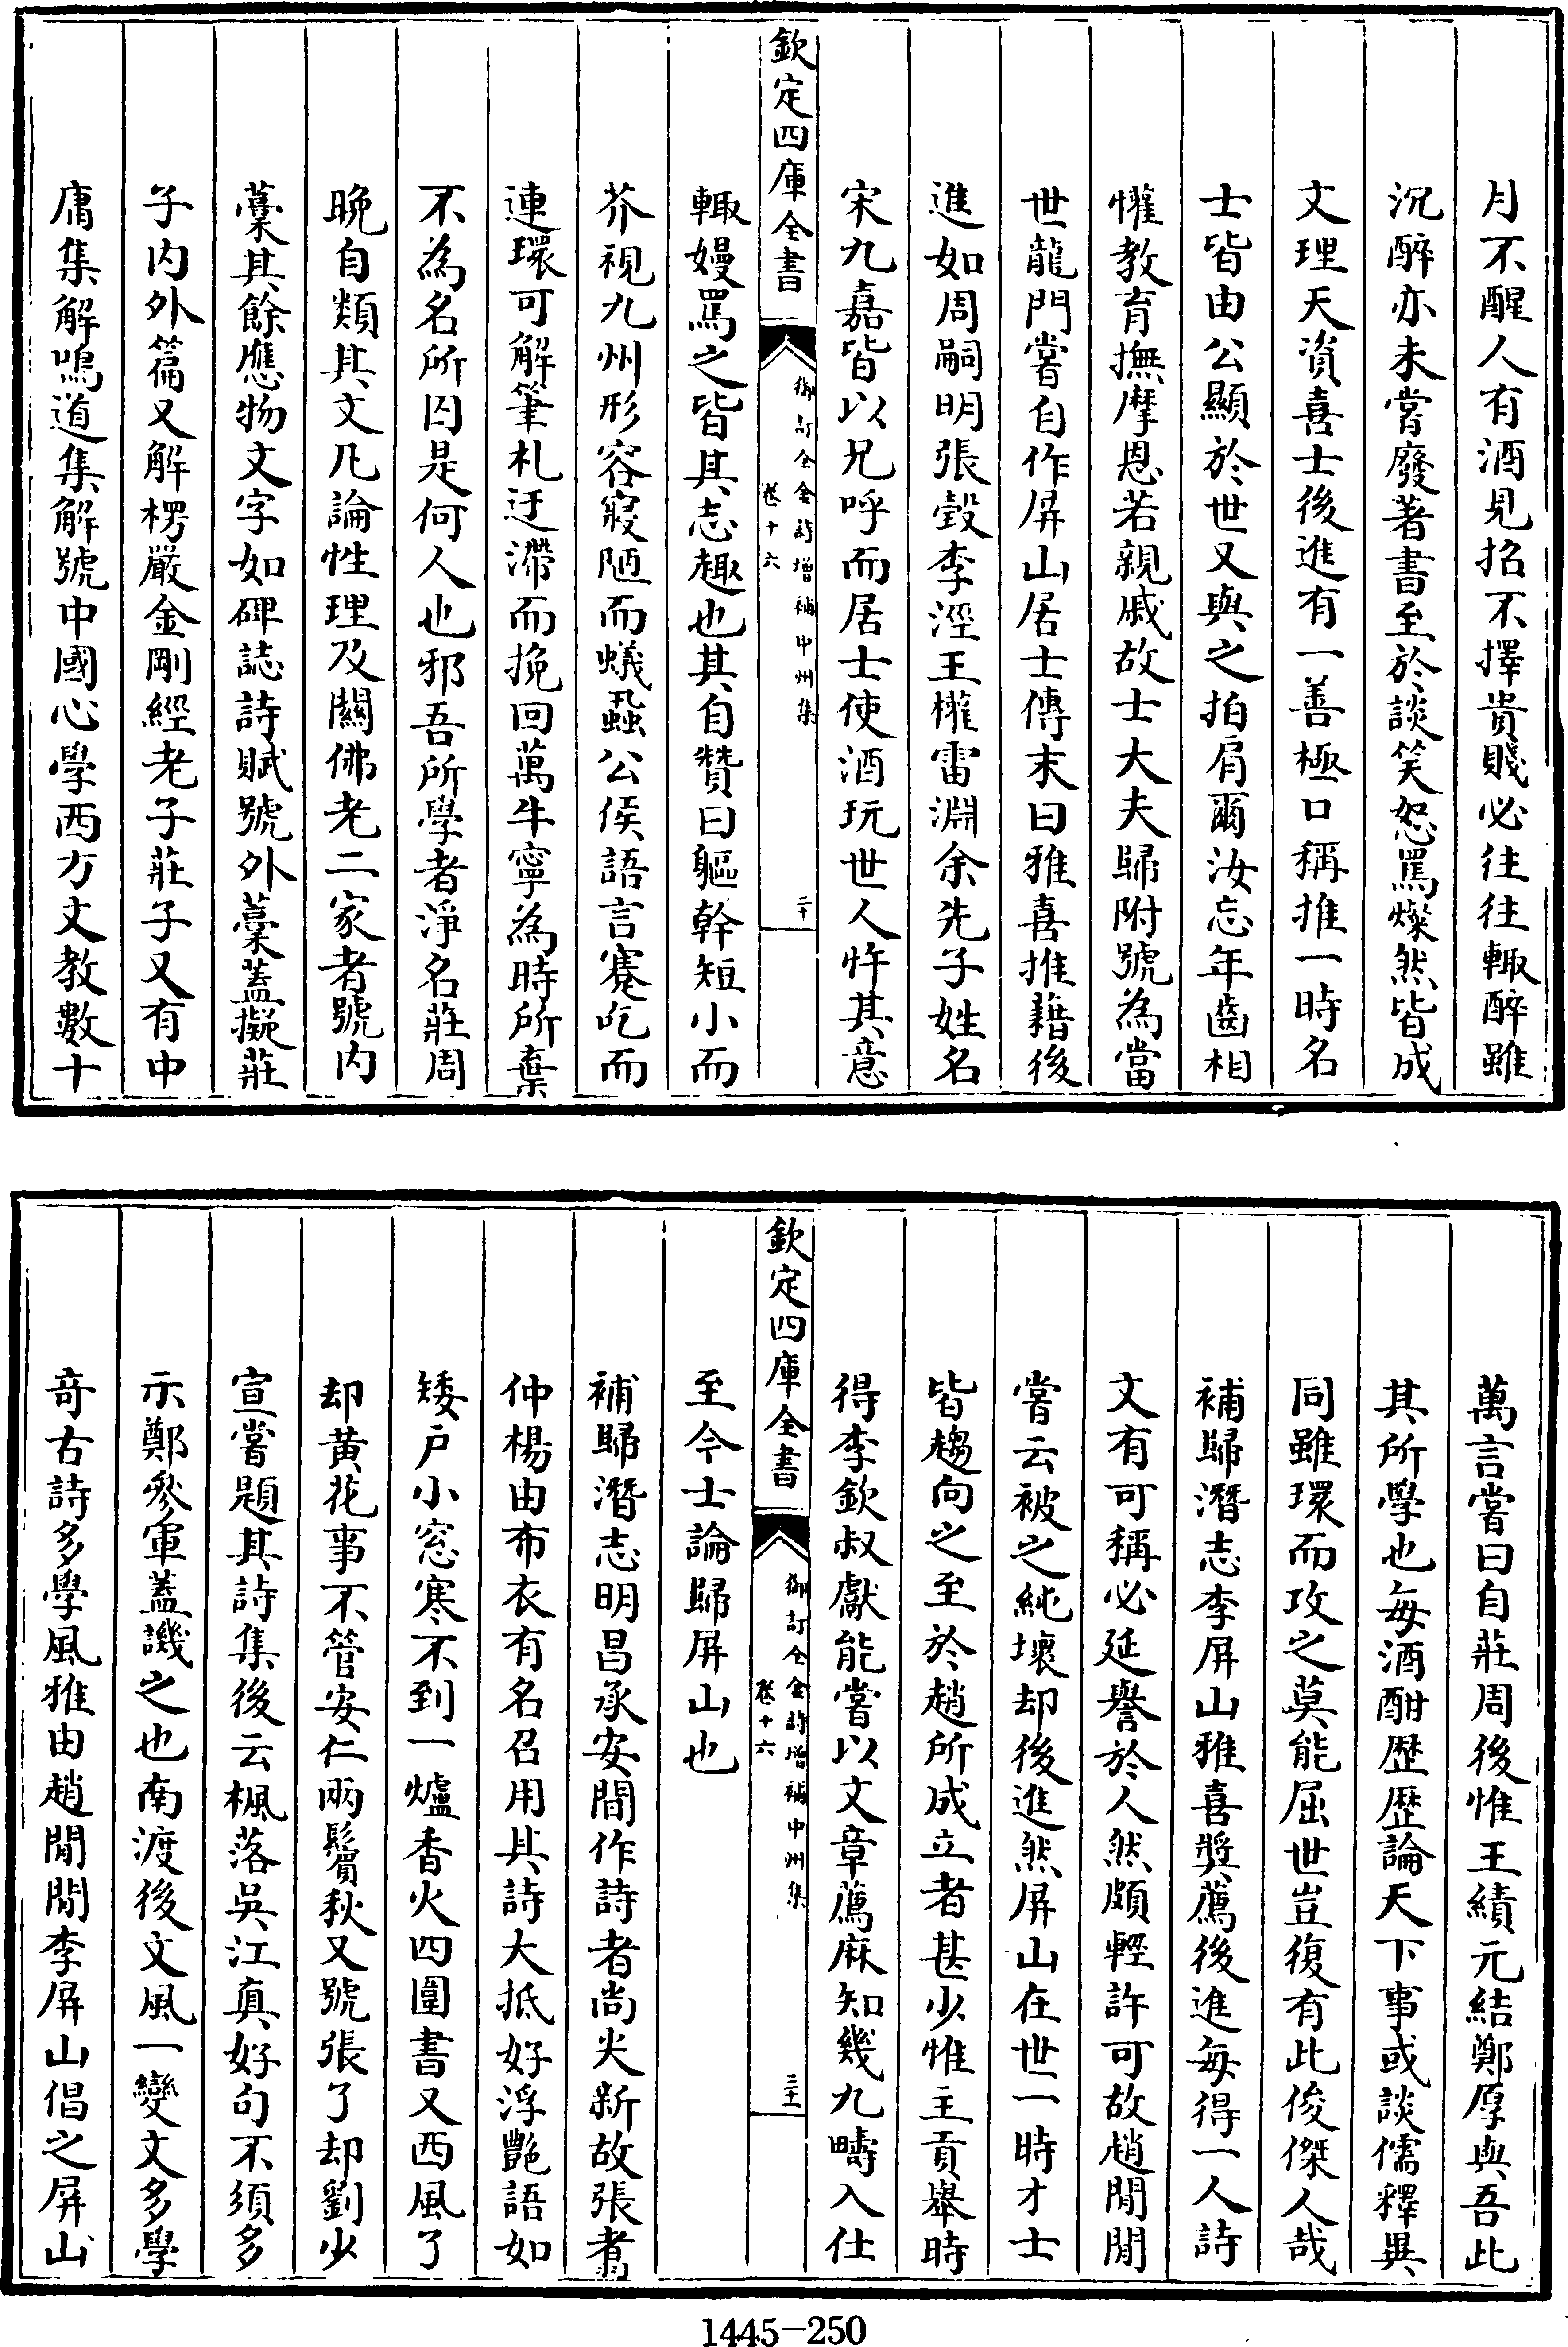 月不醒人有酒見招不擇貴賤必往往輙醉雖
沉醉亦未嘗廢著書至於談笑怒罵燦然皆成
文理天資喜士後進有一善極口稱推一時名
士皆由公顯於世又與之拍肩爾汝忘年齒相
懽教育撫摩恩若親戚故士大夫歸附號為當
世龍門嘗自作屏山居士傳末曰雅喜推藉後
進如周嗣明張瑴李涇王權雷淵余先子姓名
宋九嘉皆以兄呼而居士使酒玩世人忤其意
欽定四庫全書
御訂全金詩增補中州集
卷十六
二十
輙嫚罵之皆其志趣也其自贊曰軀幹短小而
芥視九州形容寢陋而蟻蝨公侯語言蹇吃而
連環可解筆札迂滯而挽回萬牛寧為時所棄
不為名所囚是何人也邪吾所學者淨名莊周
晚自類其文凡論性理及關佛老二家者號内
藁其餘應物文字如碑誌詩賦號外藁蓋擬莊
子内外篇又解楞嚴金剛經老子莊子又有中
庸集解鳴道集解號中國心學西方文教數十
萬言嘗曰自莊周後惟王績元結鄭厚與吾此
其所學也每酒酣歴歴論天下事或談儒釋異
同雖環而攻之莫能屈世豈復有此俊傑人哉
補歸潛志李屏山雅喜奬薦後進每得一人詩
文有可稱必延譽於人然頗輕許可故趙閒閒
嘗云被之純壞却後進然屏山在世一時才士
皆趨向之至於趙所成立者甚少惟主貢舉時
得李欽叔獻能嘗以文章薦麻知幾九疇入仕
欽定四庫全書
御訂全金詩增補中州集
卷十六
二十一
至今士論歸屏山也
補歸潛志明昌承安間作詩者尚尖新故張翥
仲楊由布衣有名召用其詩大抵好浮艷語如
矮戸小窓寒不到一爐香火四圍書又西風了
却黄花事不管安仁兩鬢秋又號張了却劉少
宣嘗題其詩集後云楓落吳江真好句不須多
示鄭參軍蓋譏之也南渡後文風一變文多學
奇古詩多學風雅由趙閒閒李屏山倡之屏山
1445-250